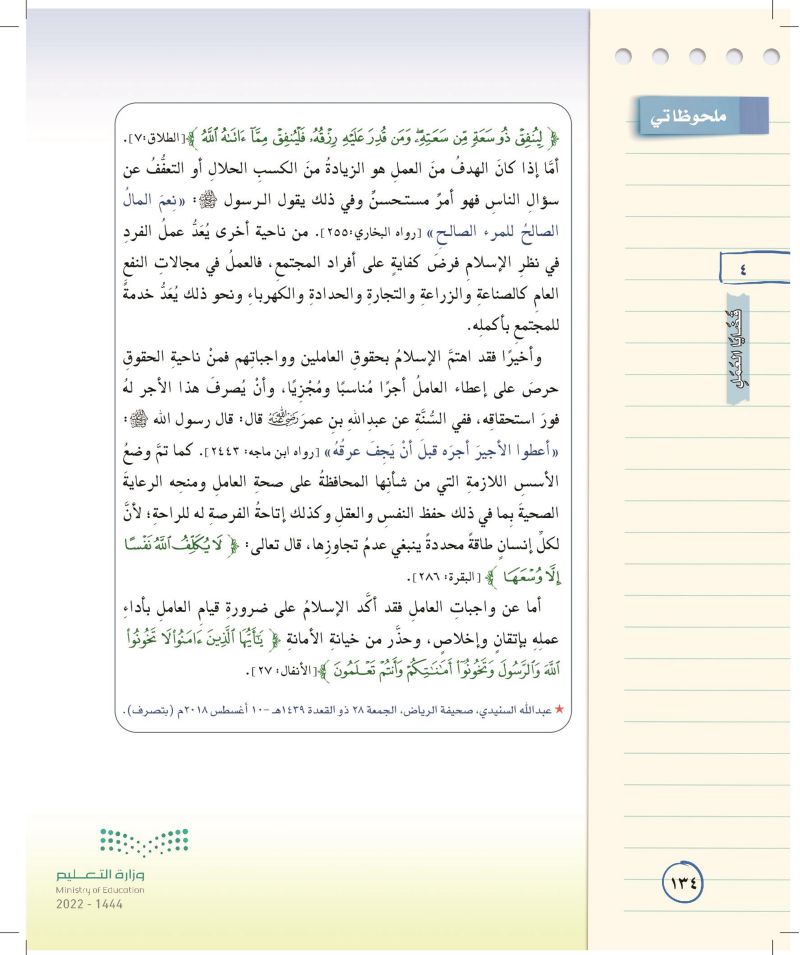 ملحوظاتي
٤
قضايا العمل
﴿ لِيُنفِقْ ذُو سَعَةٍ مِّن سَعَتِهِۦ وَمَن قُدِرَ عَلَيْهِ رِزْقُهُۥ فَلْيُنفِقْ مِمَّآ ءَاتَىٰهُ ٱللَّهُ ﴾ [الطلاق:٧].
أمَّا إذا كانَ الهدفُ منَ العملِ هو الزيادةُ منَ الكسبِ الحلالِ أو التعفُّفُ عن
سؤالِ الناسِ فهو أمرٌ مستحسنٌ وفي ذلك يقول الرسول ﷺ: «نِعمَ المالُ
الصالحُ للمرء الصالحِ» [رواه البخاري:٢٥٥]. من ناحية أخرى يُعَدُّ عملُ الفردِ
في نظرِ الإسلامِ فرضَ كفايةٍ على أفراد المجتمعِ، فالعملُ في مجالاتِ النفعِ
العامِ كالصناعةِ والزراعةِ والتجارةِ والحدادةِ والكهرباءِ ونحو ذلك يُعَدُّ خدمةً
للمجتمع بأكملِه.
وأخيرًا فقد اهتمَّ الإسلامُ بحقوقِ العاملين وواجباتِهم فمنْ ناحيةِ الحقوقِ
حرصَ على إعطاء العاملُ أجرًا مُناسبًا ومُجْزِيًا، وأنْ يُصرفَ هذا الأجر لهُ
فورَ استحقاقِه، ففي السُّنَّةِ عن عبدِاللهِ بنِ عمرَ رضي الله عنهما قال: قال رسول الله ﷺ:
«أعطوا الأجيرَ أجرَه قبلَ أنْ يَجِفَ عرقُهُ» [رواه ابن ماجه: ٢٤٤٣]. كما تمَّ وضعُ
الأسسِ اللازمةِ التي من شأنِها المحافظةُ على صحةِ العاملِ ومنحِه الرعايةَ
الصحيةَ بِما في ذلك حفظ النفسِ والعقلِ وكذلك إتاحةُ الفرصةِ له للراحةِ؛ لأنَّ
لكلِّ إنسانٍ طاقةً محددةً ينبغي عدمُ تجاوزِها، قال تعالى: ﴿ لَا يُكَلِّفُ ٱللَّهُ نَفْسًا
إِلَّا وُسْعَهَا ﴾ [البقرة: ٢٨٦].
أما عن واجباتِ العاملِ فقد أكَّد الإسلامُ على ضرورةِ قيامِ العاملِ بأداءِ
عملِه بإتقانٍ وإخلاصٍ، وحذَّر من خيانةِ الأمانةِ ﴿ يَٰٓأَيُّهَا ٱلَّذِينَ ءَامَنُوا۟ لَا تَخُونُوا۟
ٱللَّهَ وَٱلرَّسُولَ وَتَخُونُوٓا۟ أَمَٰنَٰتِكُمْ وَأَنتُمْ تَعْلَمُونَ ﴾ [الأنفال: ٢٧].
★ عبدالله السنيدي، صحيفة الرياض، الجمعة ٢٨ ذو القعدة ١٤٣٩هـ -١٠ أغسطس ٢٠١٨م (بتصرف).
وزارة التعليم
Ministry of Education
2022 - 1444
١٣٤